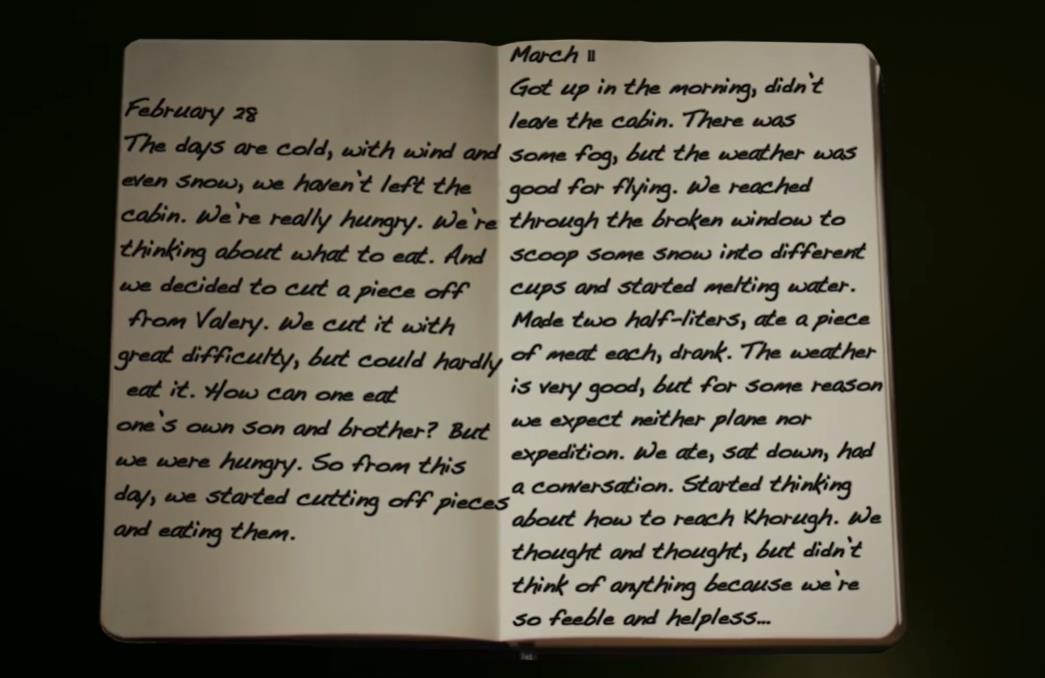 February 28
The days are cold, with wind and
even snow, we haven't left the
cabin. We're really hungry. We're
thinking about what to eat. And
we decided to cut a piece off
from Valery. We cut it with
great difficulty, but could hardly
eat it. How can one eat
one's own son and brother? But
we were hungry. So from this
day, we started cutting off pieces
and eating them.
March 11
Got up in the morning, didn't
leave the cabin. There was
some fog, but the weather was
good for flying. We reached
through the broken window to
scoop some snow into different
cups and started melting water.
Made two half-liters, ate a piece
of meat each, drank. The weather
is very good, but for some reason
we expect neither plane nor
expedition. We ate, sat down, had
a conversation. Started thinking
about how to reach Khorugh. We
thought and thought, but didn't
think of anything because we're
so feeble and helpless...